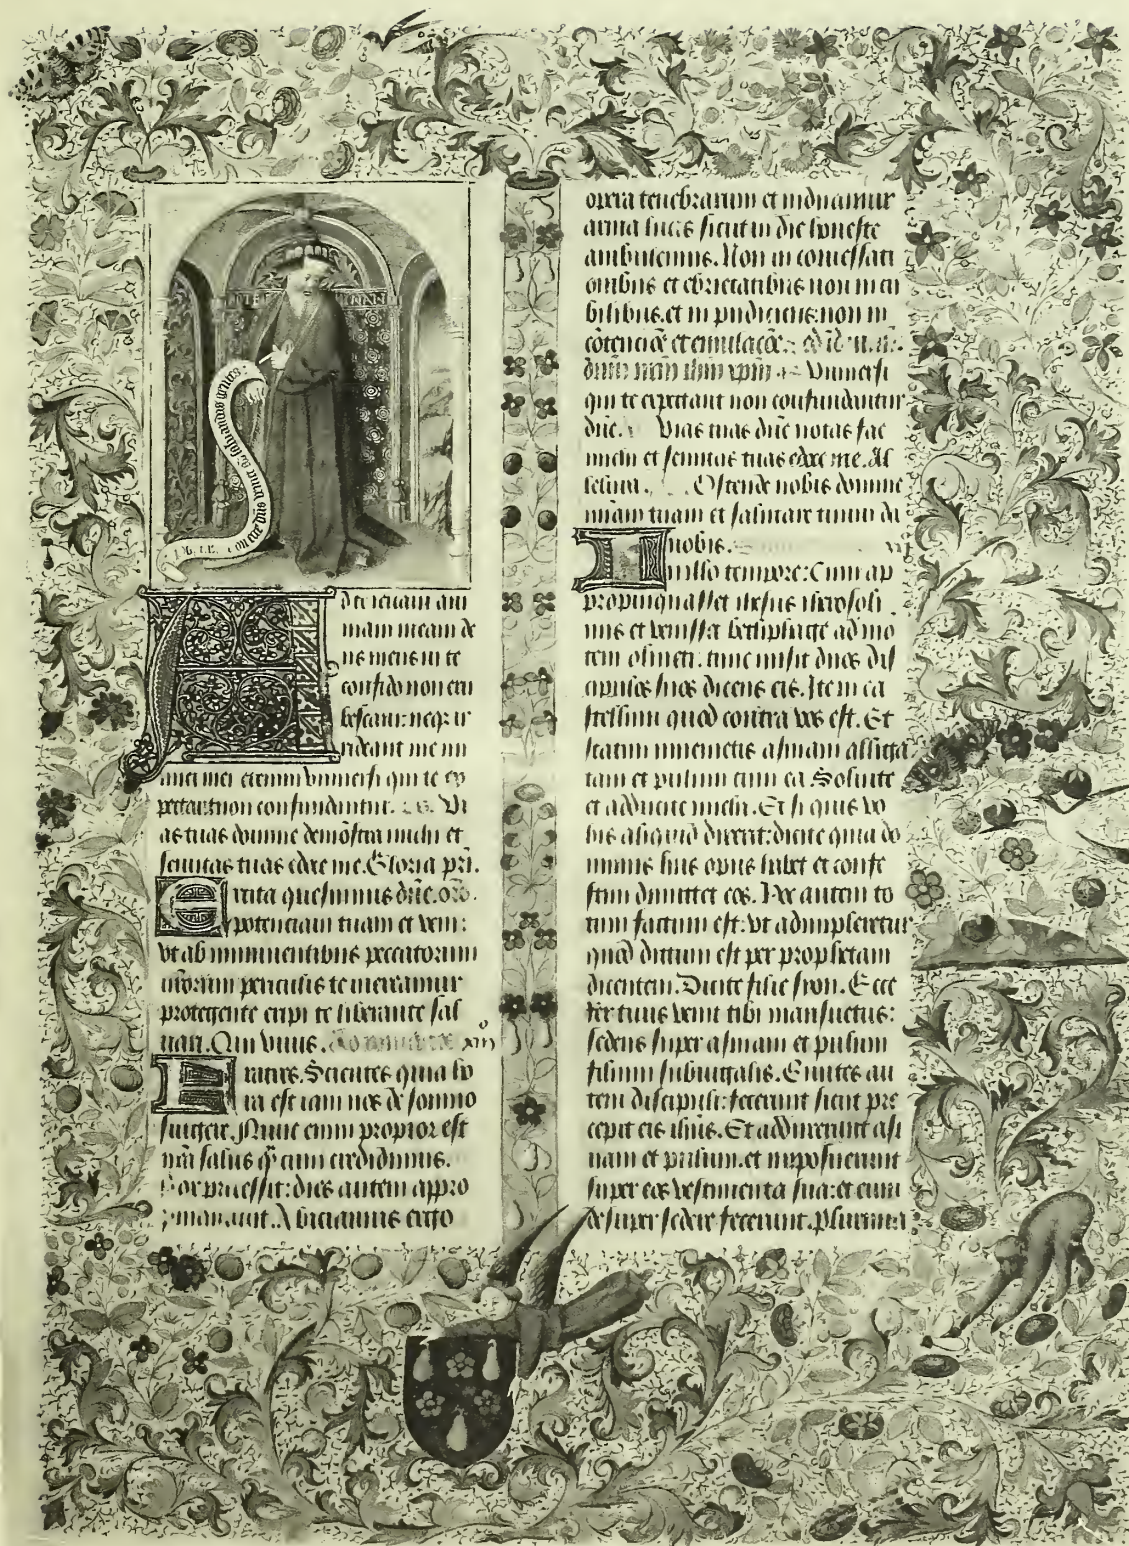 d te levavi ani
mam meam de
us meus in te
confido non eru
bescam: neqz ir
rideant me ini
mici mei etenim universi qui te ex
pectant non confundentur. Vi
as tuas domine demõstra michi et
semitas tuas edoce me. Gloria pri.
Excita quesumus dñe
potenciam tuam et veni:
ut ab imminentibus peccatorum
nrõrum periculis te mereamur
protegente eripi te liberante sal
vari. Qui vivis.
Fratres. Scientes quia ho
ra est iam nos de somno
surgere. Nunc enim propior est
nrã salus q̃ cum credidimus.
Nox precessit: dies autem appro
pinquavit. Abiciamus ergo
opera tenebrarum et induamur
arma lucis sicut in die honeste
ambulemus. Non in comessati
onibus et ebrietatibus non in cu
bilibus. et in pudiciciis: non in
cõtenciõe et emulacõe.
dñm nrm ihm xpm Universi
qui te expectant non confundentur
dñe. Vias tuas dñe notas fac
michi et semitas tuas edoce me. Al
leluia. Ostende nobis domine
miam tuam et salutare tuum da
nobis.
In illo tempore: Cum ap
propinquasset ihesus iherosoli
mis et venisset bethphage ad mõ
tem oliveti: tunc misit duos dis
cipulos suos dicens eis. Ite in ca
stellum quod contra vos est. Et
statim invenietis asinam alliga
tam et pullum cum ea. Solvite
et adducite michi. Et si quis vo
bis aliquid dixerit: dicite quia do
minus hiis opus habet et confe
stim dimittet eos. Hoc autem to
tum factum est: ut adimpleretur
quod dictum est per prophetam
dicentem. Dicite filie syon. Ecce
rex tuus venit tibi mansuetus:
sedens super asinam et pullum
filium subiugalis. Euntes au
tem discipuli: fecerunt sicut pre
cepit eis ihus. Et adduxerunt asi
nam et pullum. et imposuerunt
super eos vestimenta sua: et eum
desuper sedere fecerunt. Plurima